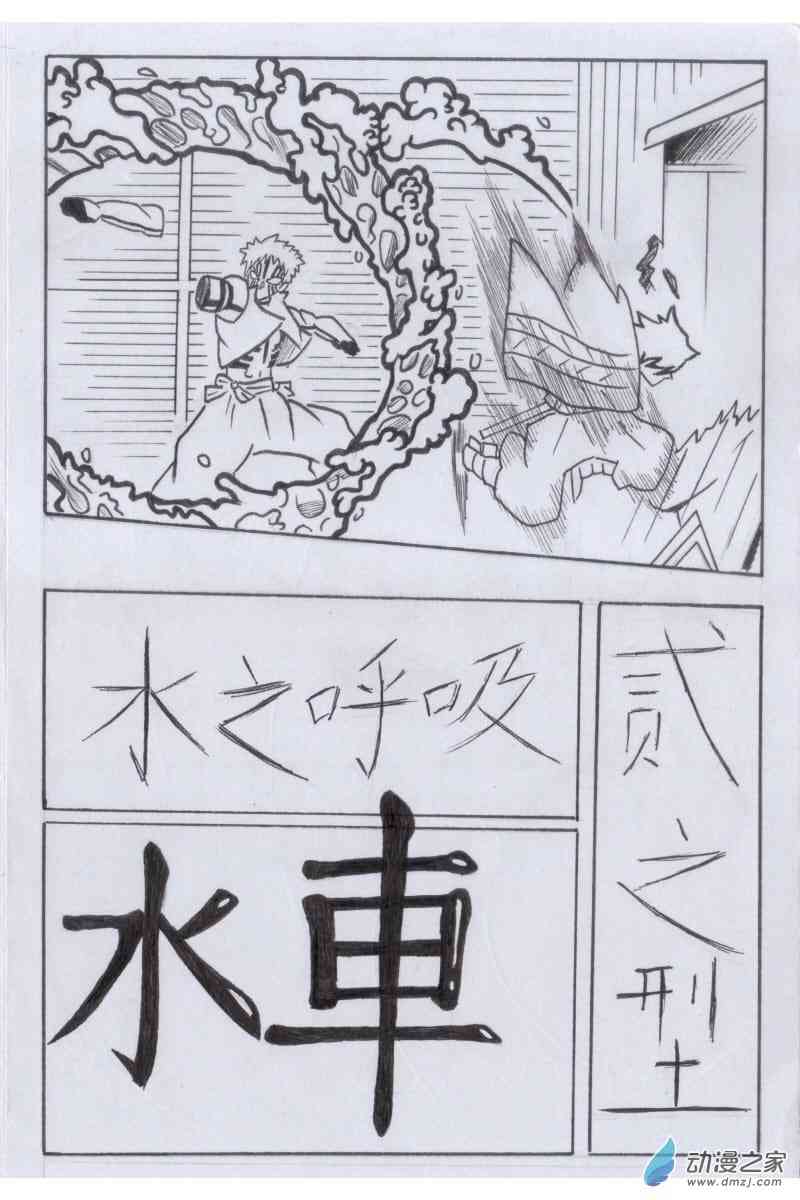 水之呼吸
贰之型
水車
动漫之家
www.dmzj.com